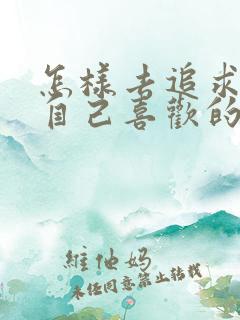 怎樣去追求
自己喜歡的
維他媽
未经同意禁止转载